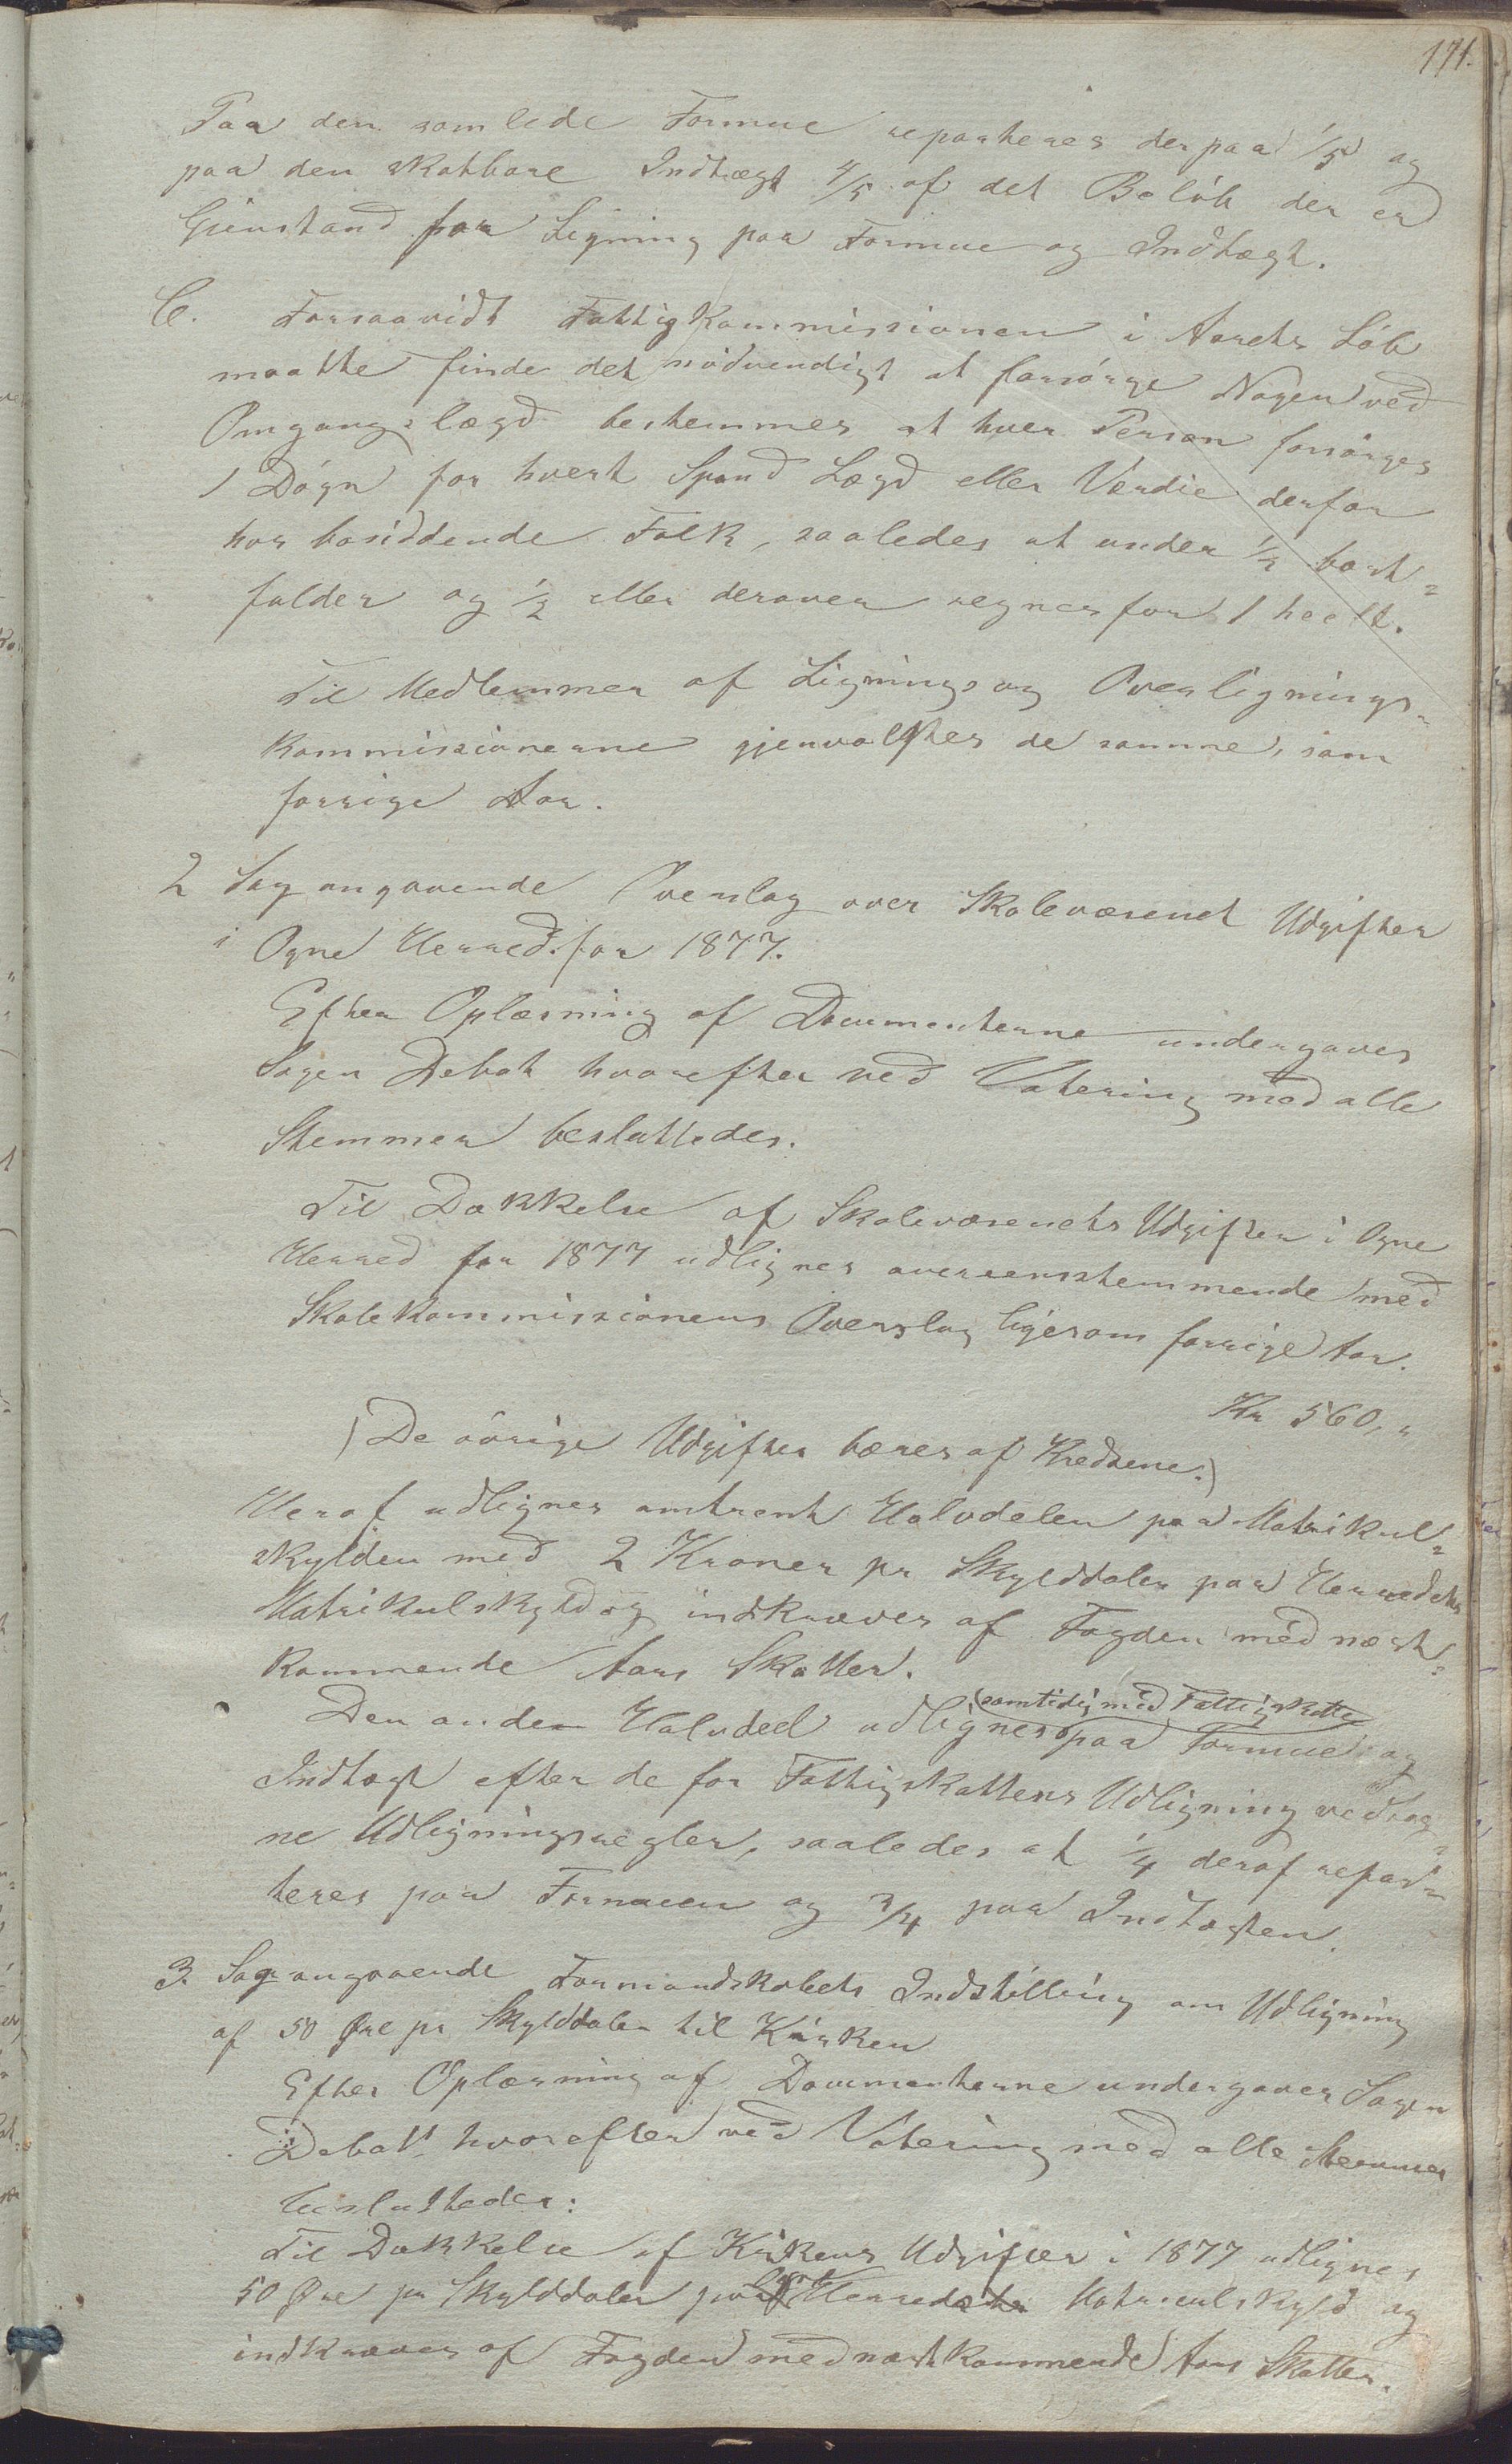 171.
Paa den samlede Formue reparteres derpaa 1/5 og
paa den skatbare Indtægt 4/5 af det Beløb der er
Gjenstand for Ligning paa Formue og Indtægt.
C. Forsaavidt Fattigkommissionen i Aarets Løb
maatte finde det nødvendigt at forsørge Nogen ved
Omgangslægd bestemmes at hver Person forsørges
1 Døgn for hvert Spand Lægd eller Værdie derfor
hos bosiddende Folk, saaledes at under ½ bort-
falder og ½ eller derover regnes for 1 heelt.
Til Medlemmer af Lignings og Overlignings-
kommissionerne gjenvalgtes de samme, som
forrige Aar.
2 Sag angaaende Overslag over Skolevæsenet Udgifter
i Ogne Herred for 1877.
Efter Oplæsning af Documenterne undergaves
Sagen Debat hvorefter ved Votering med alle
Stemmer besluttedes.
Til Dækkelse af Skolevæsenets Udgifter i Ogne
Herred for 1877 udlignes overeensstemmende med
Skolekommissionens Overslag ligesom forrige Aar.
Kr 560,"
(De øvrige Udgifter bæres af Kredsene.)
Heraf udlignes omtrent Halvdelen paa Matrikul-
skylden med 2 Kroner pr Skylddaler paa Herredets
Matrikulskyld og indkræves af Fogden med næst-
kommende Aars Skatter.
(samtidig med Fattigskatten
Den anden Halvdeel udlignes paa Formue og
Indtægt efter de for Fattigskattens Udligning vedtag-
ne Udligningsregler, saaledes at ¼ deraf repar-
teres paa Formuen og 3/4 paa Indtægten.
3. Sag angaaende Formandskabets Indstilling om Udligning
af 50 Øre pr Skylddaler til Kirken
Efter Oplæsning af Documenterne undergaves Sagen
Debat hvorefter ved Votering med alle Stemmer
besluttedes:
Til Dækkelse af Kirkens Udgifter i 1877 udlignes
50 Øre pr Skylddaler paa Herredets Matriculskyld og
indkræves af Fogden med næstkommende Aars Skatter.